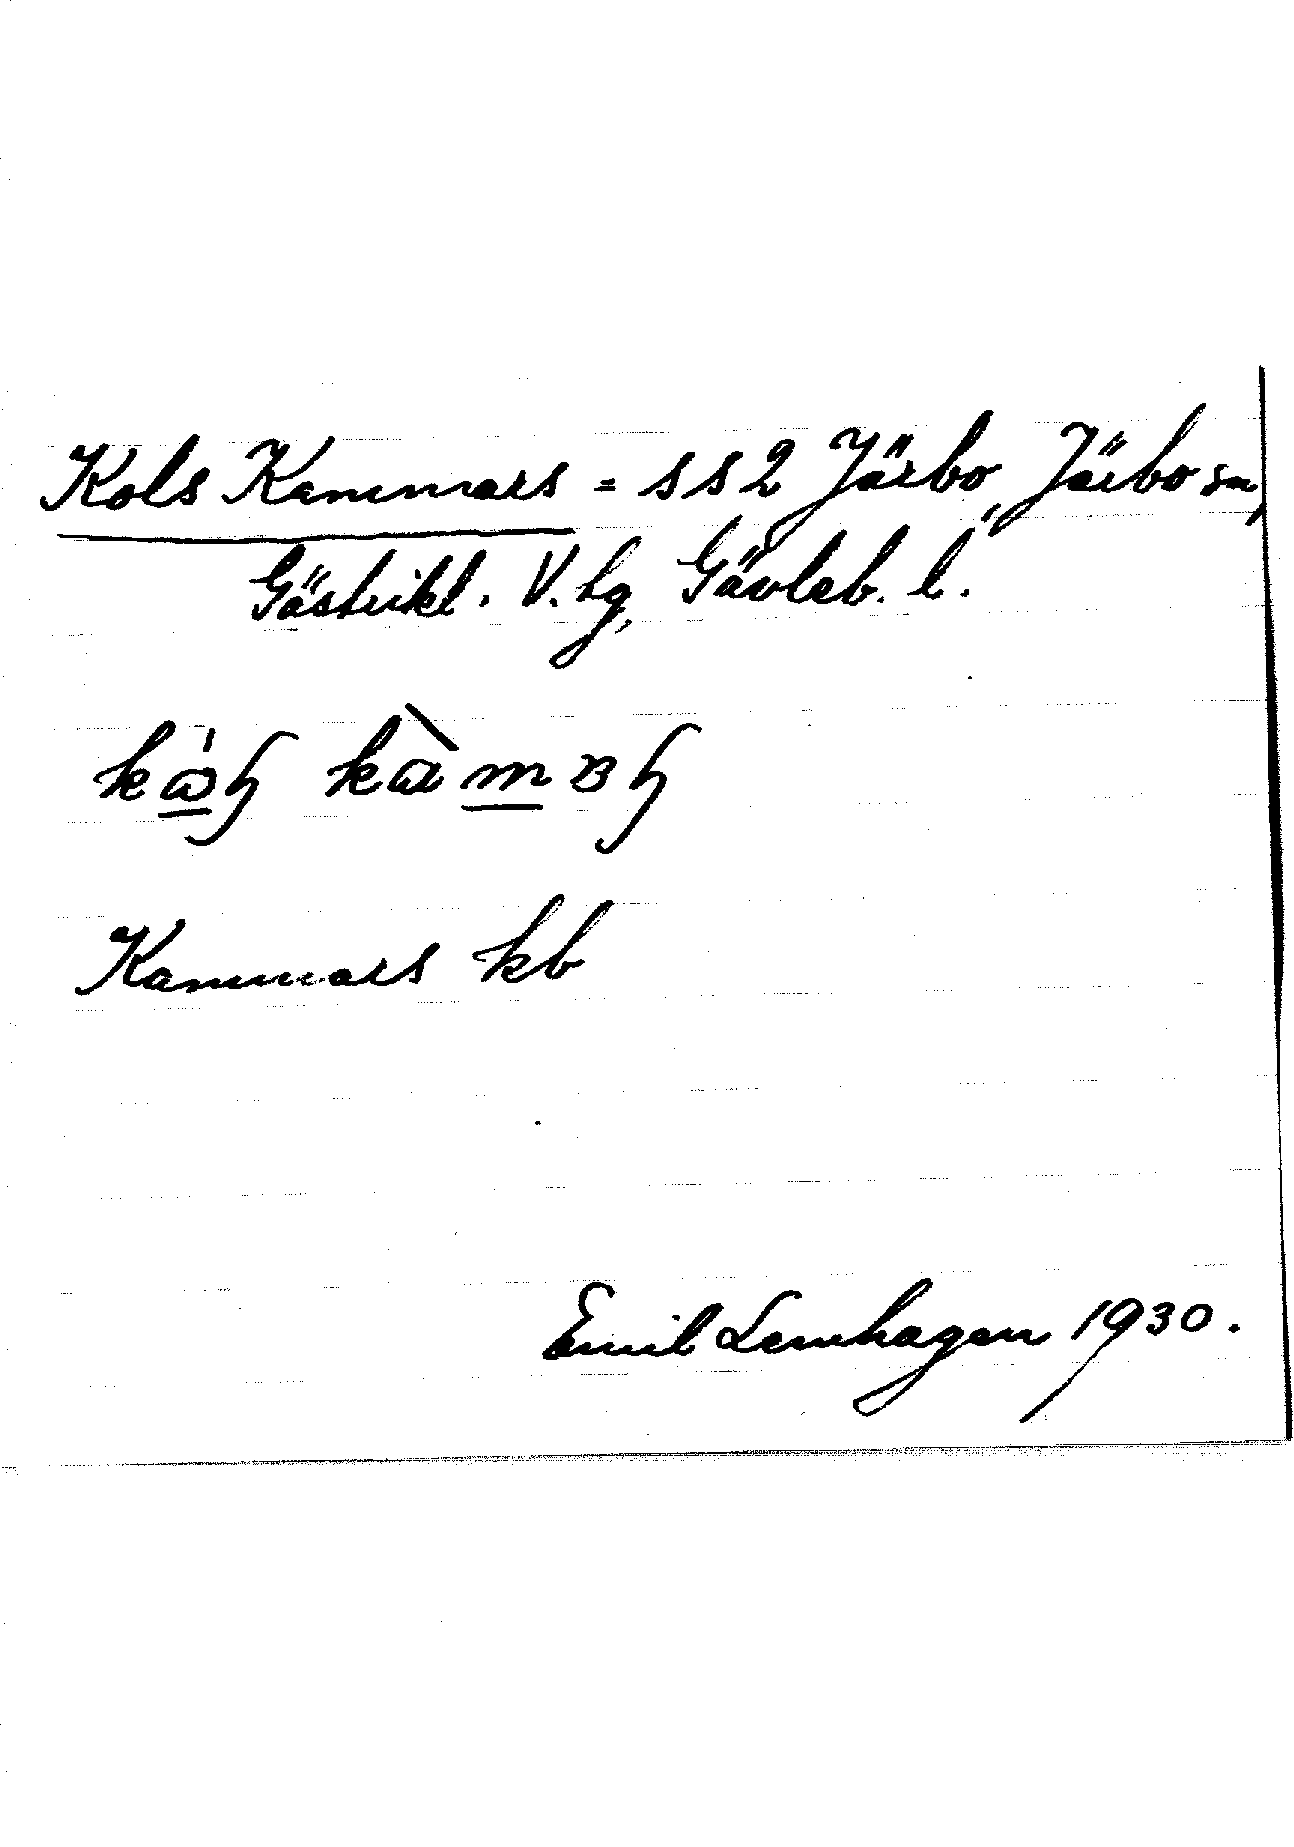 Kols Kammars = s s 2 Järbo, Järbo sn,
Gästrikl. V. tg, Gävleb. l.
kɷ̀ꞕ kàmɞꞕ
Kammars kb
Emil Lenhagen 1930.